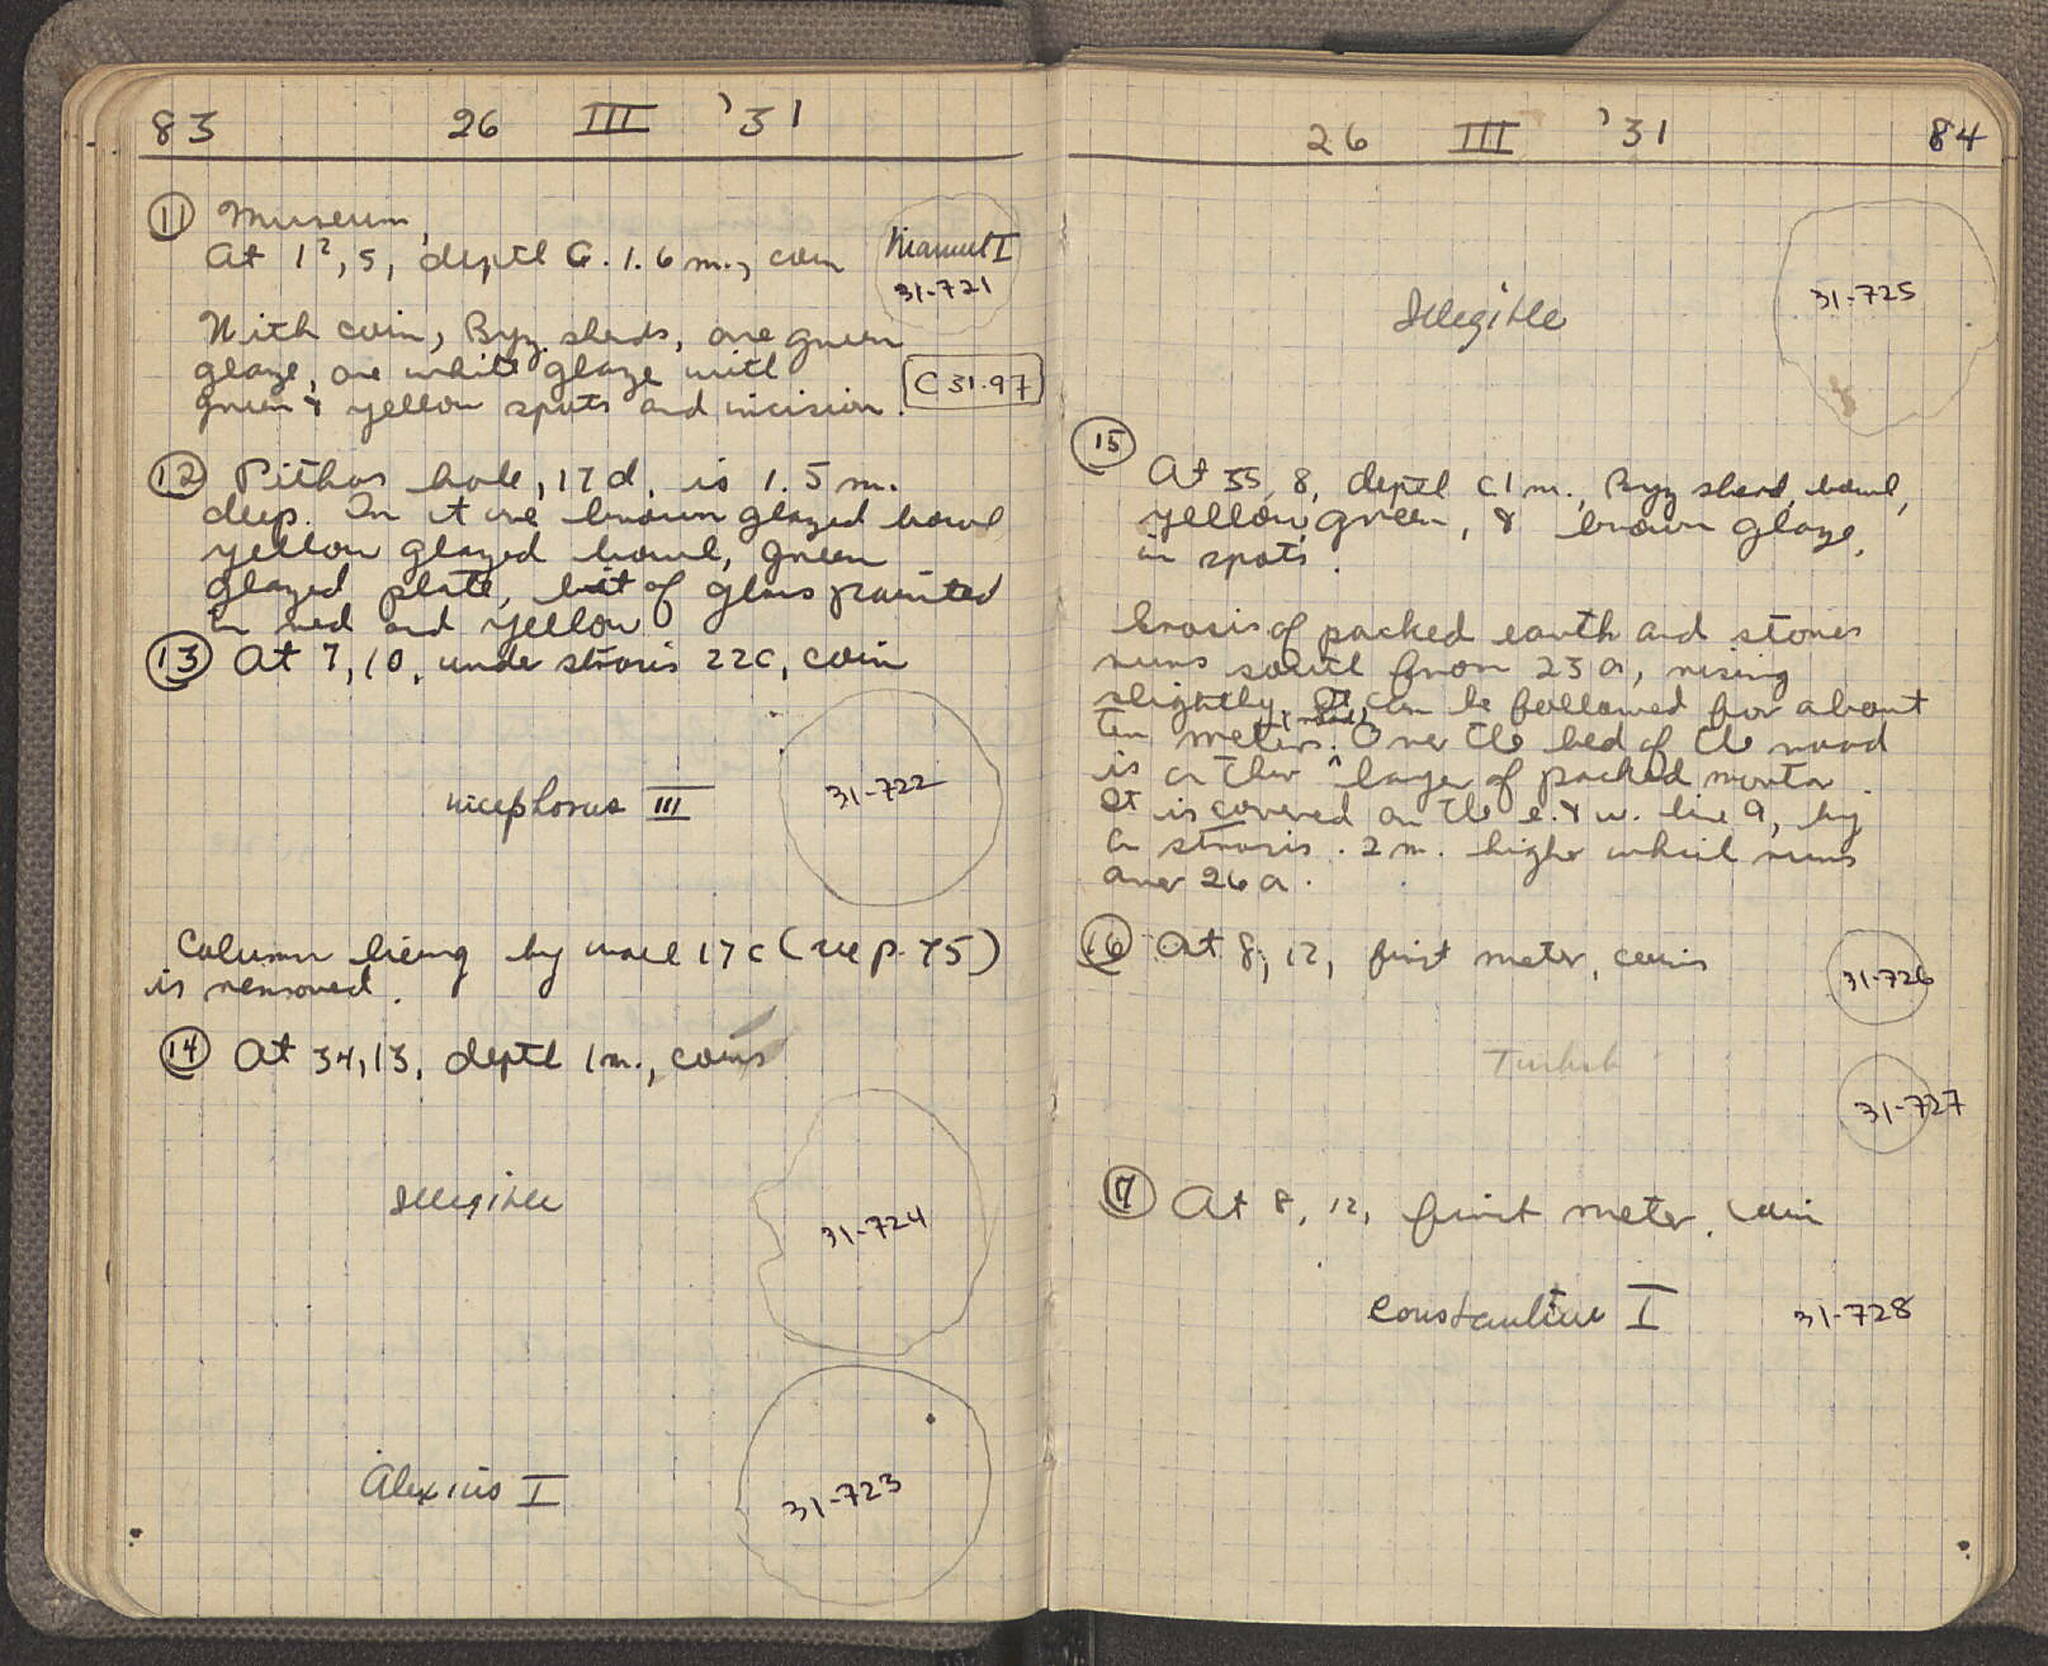 83 26 III '31
11 Museum,
At 1², 5, depth c. 1.6 m., coin
Manuel I
31-721
With coin, Byz. sherds, one green
glaze, one white glaze with
green & yellow spots and incision.
C 31.97
12 Pithos hole, 17d, is 1.5 m.
deep. In it one brown glazed bowl
yellow glazed bowl, green
glazed plate, bit of glass painted
in red and yellow
13 At 7, 10, under strosis 22c, coin
Nicephorus III
31-722
Column lieing by wall 17c (see p. 75)
is removed.
14 At 34, 13, depth 1 m., coins
Illegible
31-724
Alexius I
31-723
26 III '31 84
Illegible
31-725
15
At 35, 8, depth c 1 m., Byz sherd, bowl,
yellow, green, & brown glaze,
in spots.
of packed earth and stones
runs south from 23a, rising
slightly. It can be followed for about
ten meters. (road) Over the bed of the road
is a thin layer of packed mortar.
It is covered on the e. & w. line 9, by
a strosis .2 m. higher which runs
over 26a.
16 At 8, 12, first meter, coins
31-726
Turkish
31-727
17 At 8, 12, first meter, coin
Constantine I 31-728